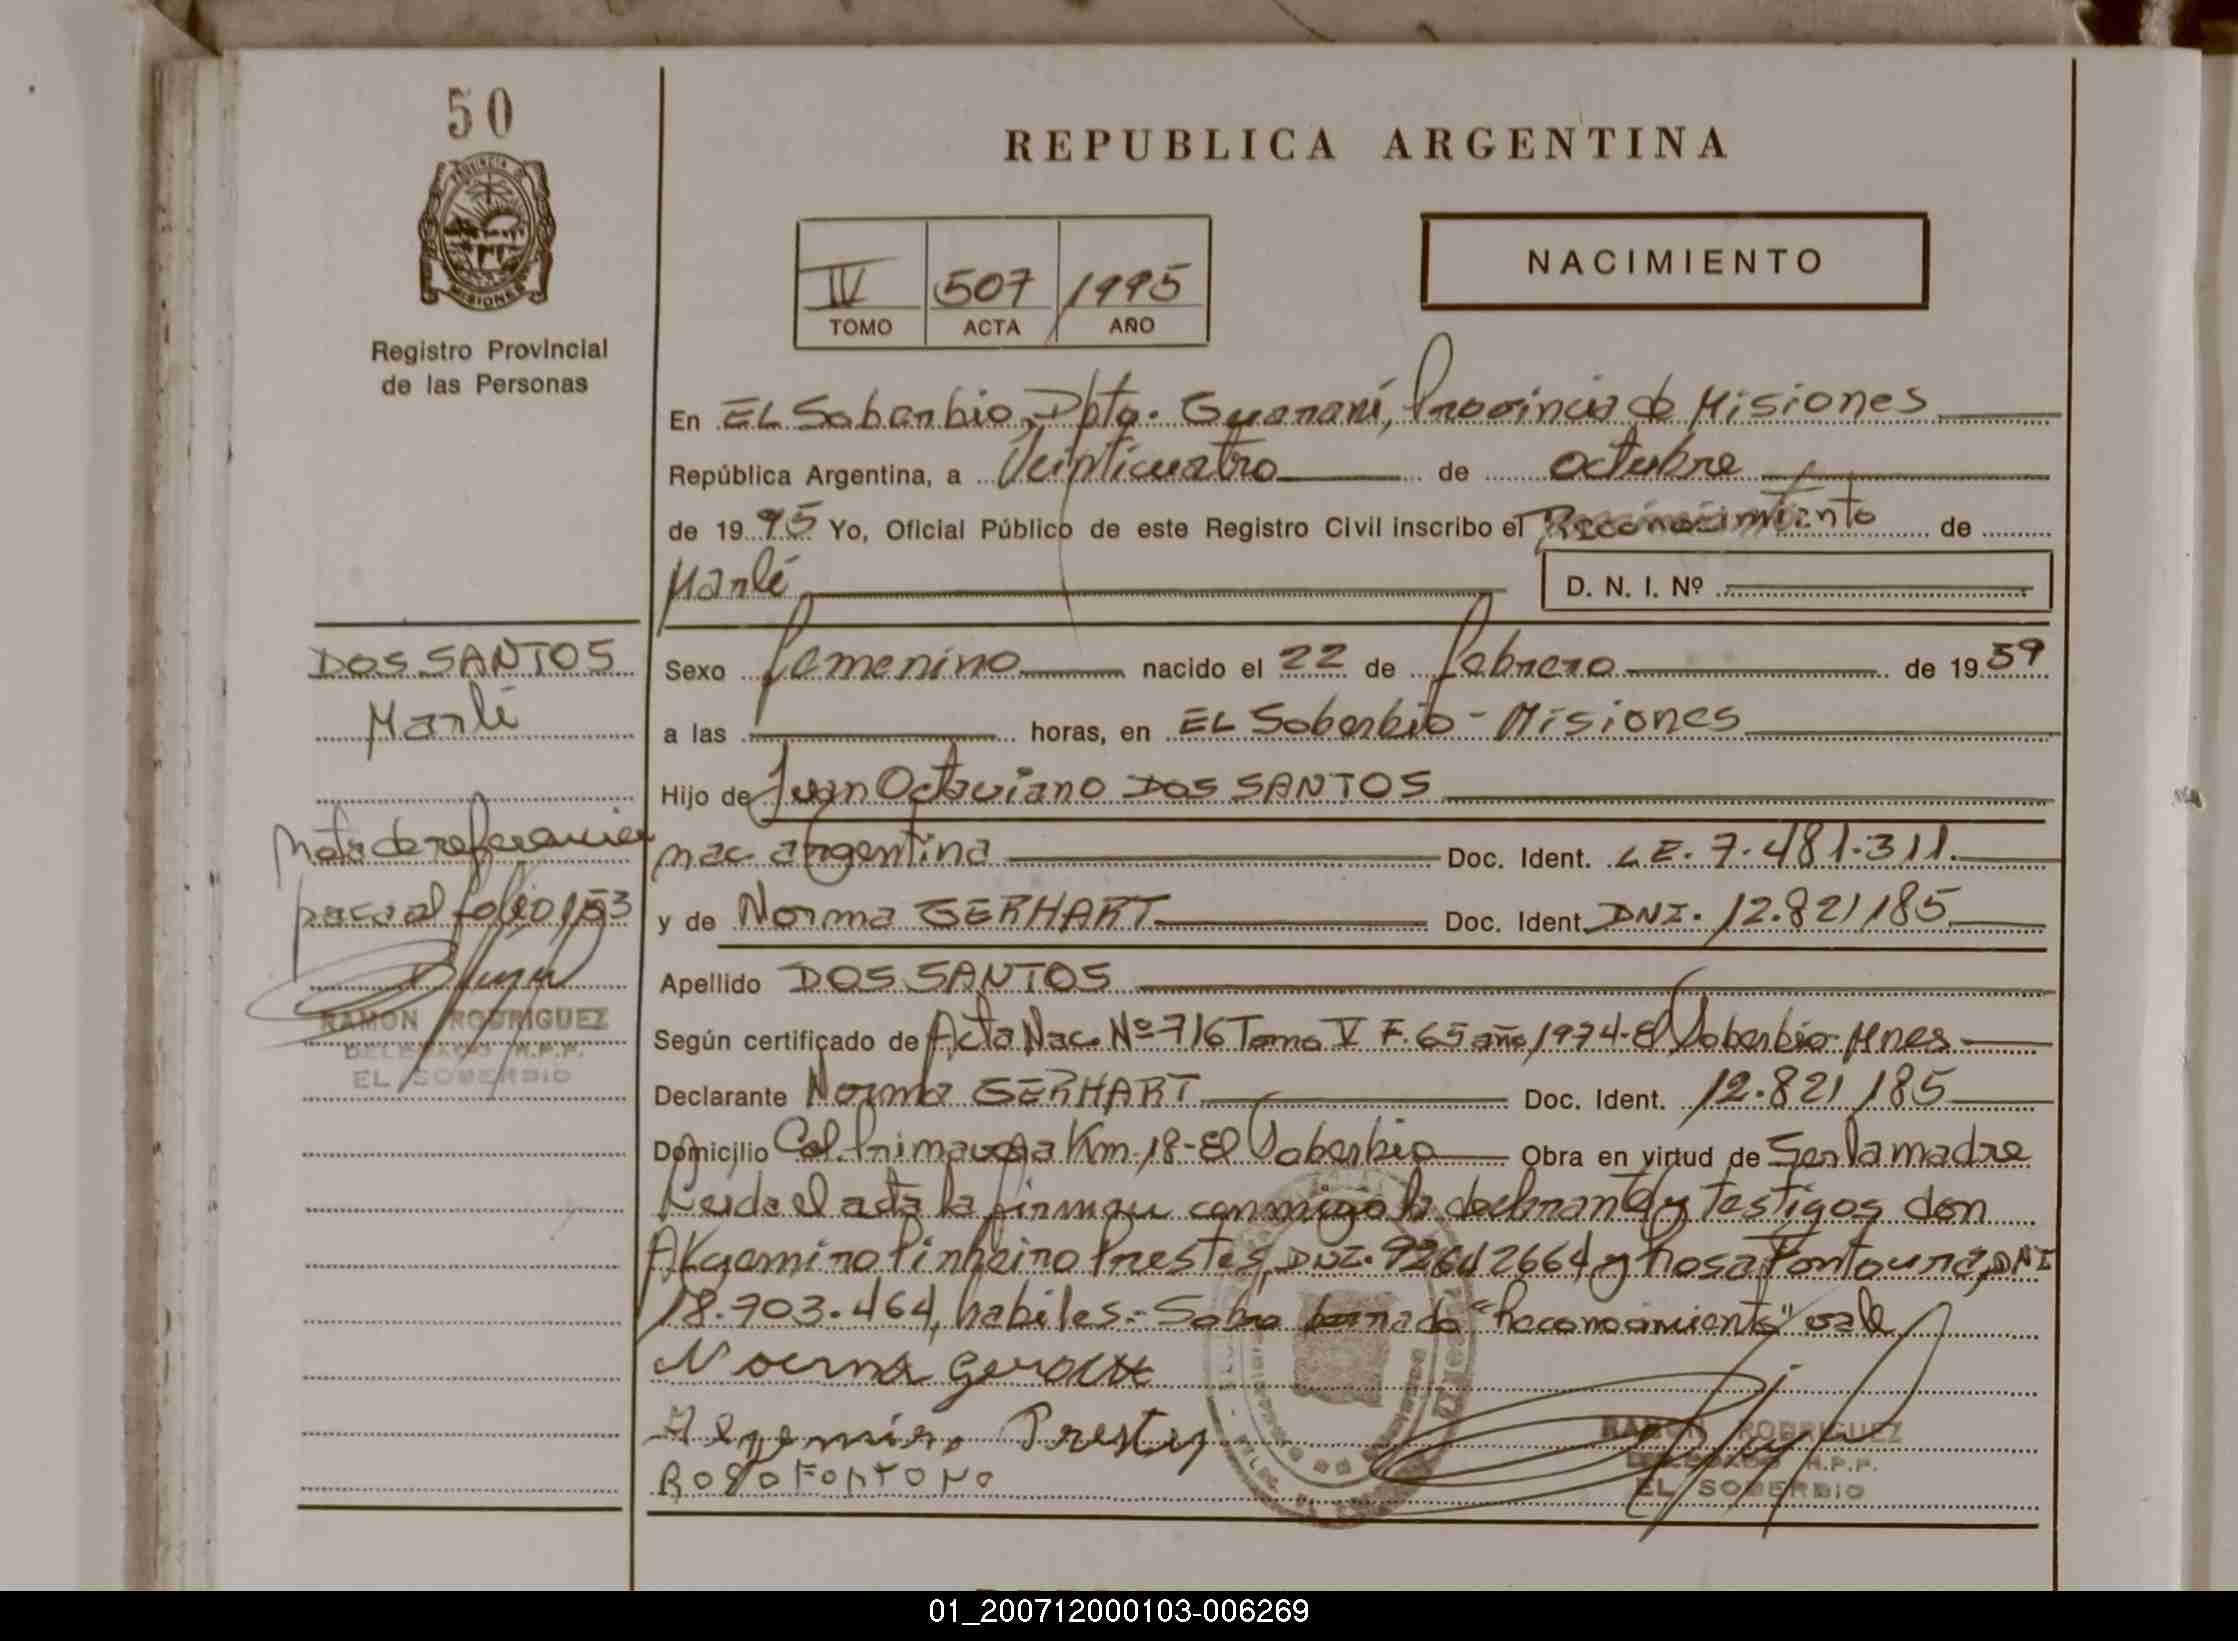 50
PROVINCIA DE
MISIONES
Registro Provincial
de las Personas
REPUBLICA ARGENTINA
IV 507 1995
TOMO ACTA AÑO
NACIMIENTO
En EL Soberbio, Dpto. Guaraní, Provincia de Misiones
República Argentina, a Veinticuatro de octubre
de 1995 Yo, Oficial Público de este Registro Civil inscribo el Reconocimiento de
Marlé
D. N. I. Nº
DOS SANTOS
Marlé
Nota de referencia
pasa al folio 153
RAMON RODRIGUEZ
DELEGADO R.P.P.
EL SOBERBIO
Sexo femenino nacido el 22 de febrero de 1959
a las horas, en EL Soberbio - Misiones
Hijo de Juan Octaviano DOS SANTOS
nac argentina Doc. Ident. LE. 7.481.311
y de Norma GERHART Doc. Ident. DNI. 12.821185
Apellido DOS SANTOS
Según certificado de Acta Nac. Nº 716 Tomo V F. 65 año 1974- El Soberbio Mnes
Declarante Norma GERHART Doc. Ident. 12.821185
Domicilio Col. Primavera Km 18- El Soberbio Obra en virtud de Ser la madre
Leida el acta la firman conmigo la declarante y testigos don
Algemiro Pinheiro Prestes, DNI. 92642664 y Rosa Fontoura, DNI
18.703.464, habiles.- Sobre borrado "Reconocimiento" vale
Norma
Algemiro Prestes
RAMON RODRIGUEZ
DELEGADO R.P.P.
EL SOBERBIO
01_200712000103-006269